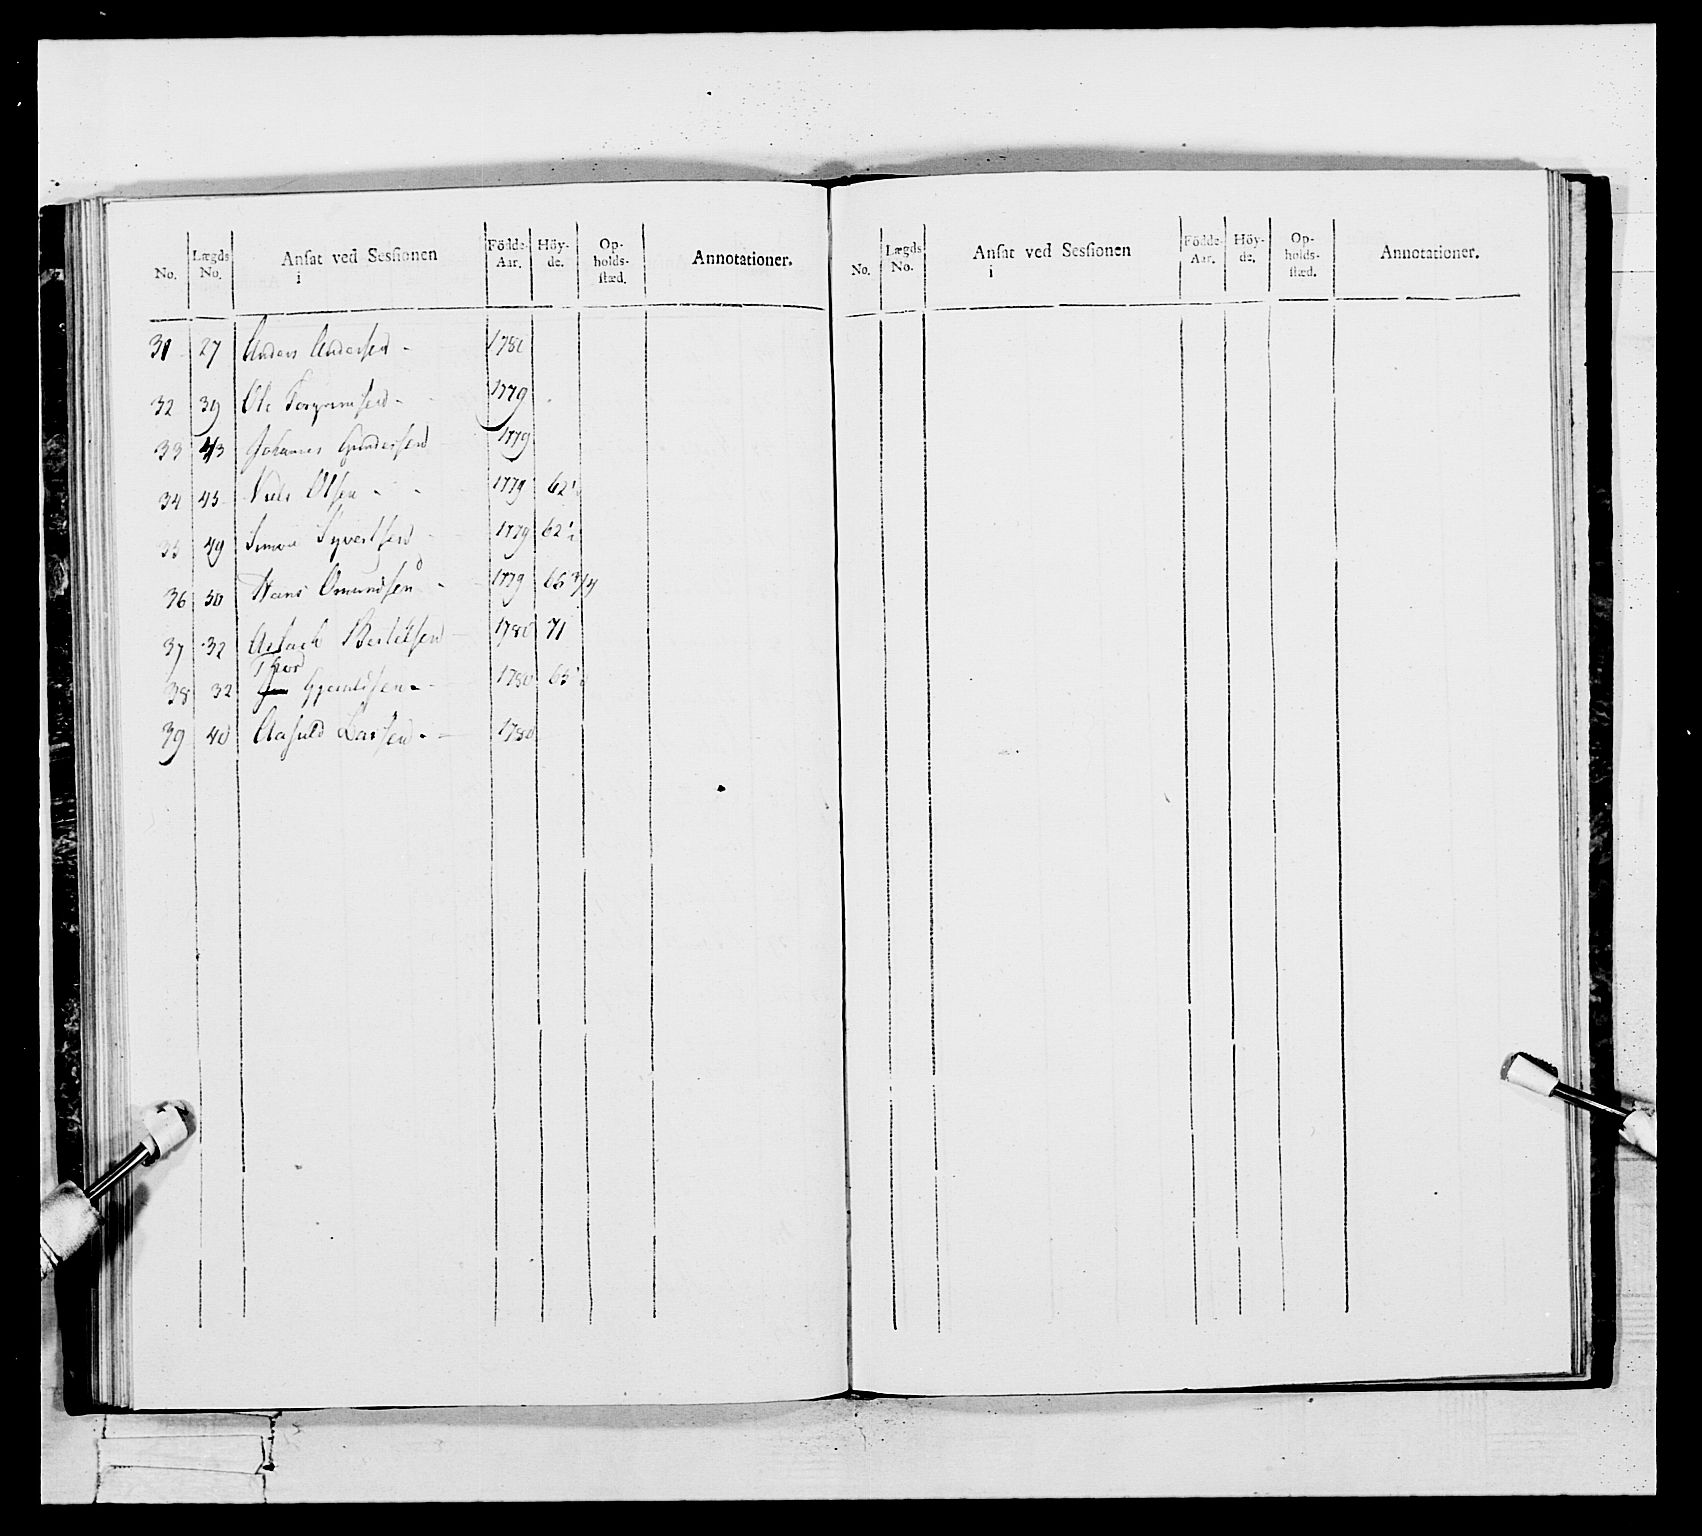 No. Lægds No. Ansat ved Sessionen i Födde-Aar. Höy-de. Op-holds-stæd. Annotationer.
31 27 Anders Andersen - 1781
32 39 Ole Torgrimsen - 1779
33 43 Johannes Gundersen 1779
34 45 Niels Olsen - - 1779 62½
35 49 Simon Syvertsen 1779 62½
36 50 Hans Omundsen - 1779 65 3/4
37 32 Aslach Bertelsen 1780 71
Thor
38 32 Gjeruldsen - 1780
39 40 Aasuld Larsen - 1780
No. Lægds No. Ansat ved Sessionen i Födde-Aar. Höy-de. Op-holds-stæd. Annotationer.